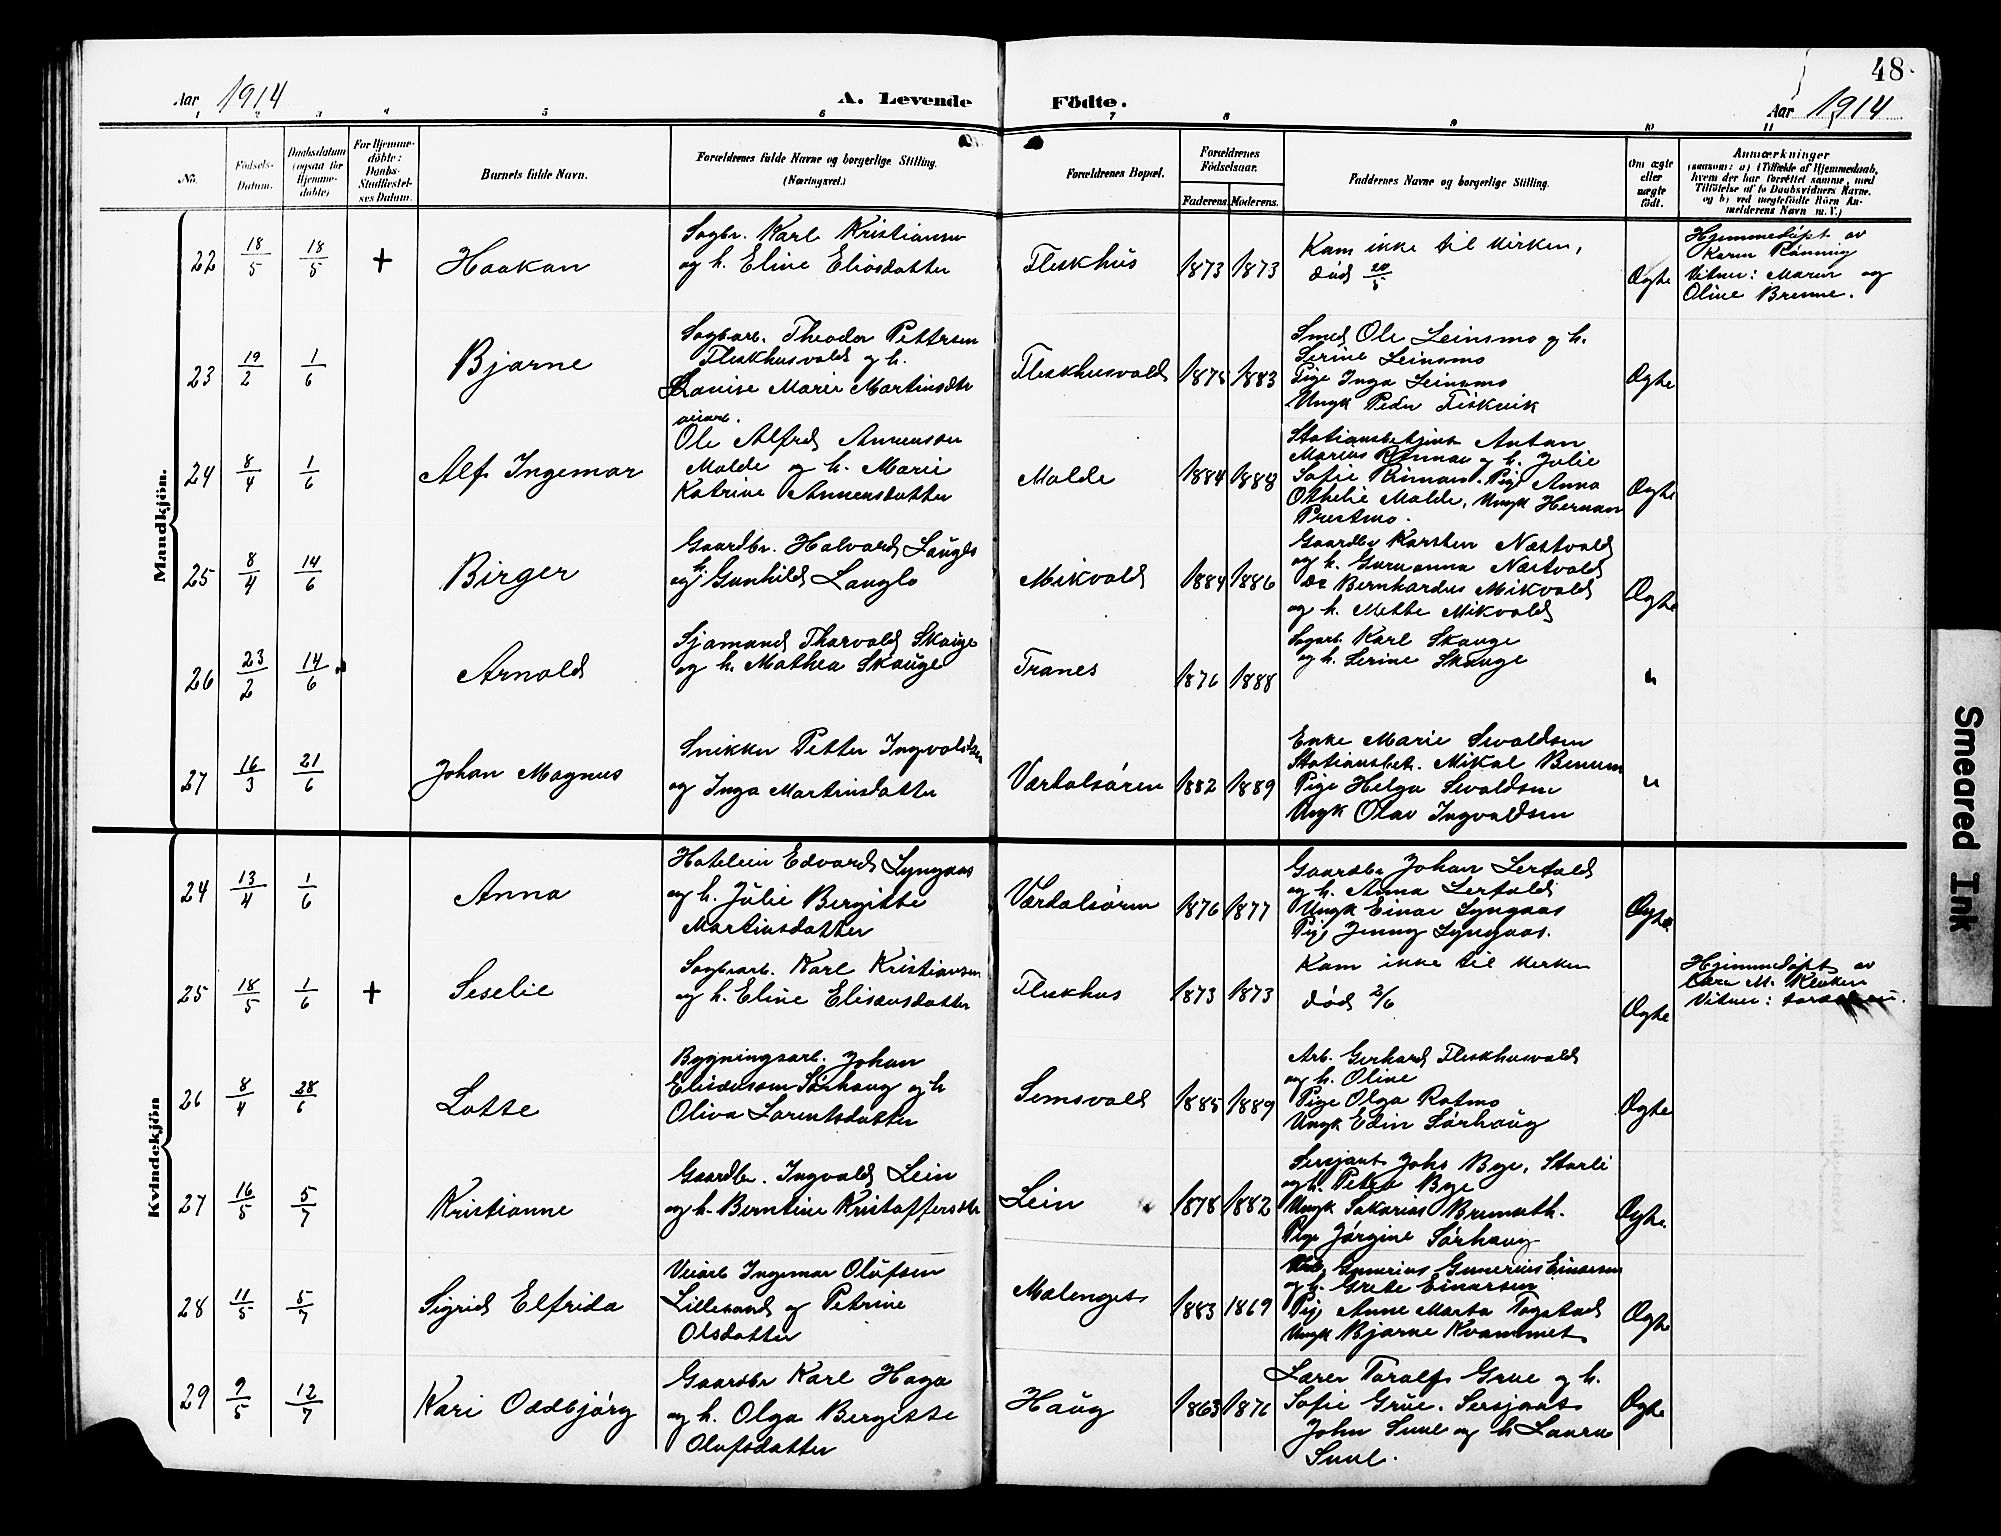 48.
Aar 1914
A. Levende Födte.
Aar 1914
1 2 3 4 5 6 7 8 9 10 11
No.
Födsels-
Datum.
Daabsdatum
(ogsaa for
Hjemme-
døbte)
For Hjemme-
døbte:
Daabs-
Stadfæstel-
ses Datum.
Barnets fulde Navn.
Forældrenes fulde Navne og borgerlige Stilling.
(Næringsvei.)
Forældrenes Bopæl.
Forældrenes
Födselsaar.
Faderens. Moderens.
Faddernes Navne og borgerlige Stilling.
Om ægte
eller
uægte
födt.
Anmærkninger
(saasom: a) i Tilfælde af Hjemmedaab,
hvem der har forrettet samme, med
Tilföielse af to Daabsvidners Navne.
og b) ved uægtefödte Börn An-
melderens Navn m. V.)
Mandkjön.
22 18/5 18/5 + Haakon
Sagbr. Karl Kristiansen
og h. Eline Eliasdatter
Fleskhus 1873 1873
Kom ikke til kirken,
død 20/5
Ægte
Hjemmedøpt av
Karen Rönning
Vitner: Maren og
Oline Brenne.
23 19/2 1/6 Bjarne
Sagbarb. Theodor Pettersen
Fleskhusvald og h.
Louise Marie Martinsdtr
Fleskhusvald 1875 1883
Smed Ole Leinsmo og h.
Serine Leinsmo
Pige Inga Leinsmo
Ungk Peder Fiskvik
Ægte
24 8/4 1/6 Alf Ingemar
veiarb.
Ole Alfred Annensen
Molde og h. Marie
Katrine Annensdatter
Molde 1884 1888
Stationsbetjent Anton
Marius Rinnan og h. Julie
Sofie Rinnan. Pige Anna
Othelie Molde, Ungk Herman
Prestmo.
Ægte
25 8/4 14/6 Birger
Gaardbr. Halvard Langlo
og h. Gunhild Langlo
Mikvold 1884 1886
Gaardbr Karsten Næstvold
og h. Gurianna Næstvold
do Bernhardus Mikvold
og h. Mette Mikvold
Ægte
26 23/2 14/6 Arnold
Sjömand Thorvald Skauge
og h. Mathea Skauge
Tranes 1876 1888
Sagarb. Karl Skauge
og h. Serine Skauge
"
27 16/3 21/6 Johan Magnus
Snikker Petter Ingvaldsen
og Inga Martinsdatter
Værdalsøren 1882 1889
Enke Marie Sivaldsen
Stationsbet. Mikal Benum
Pige Helga Sivaldsen
Ungk Olav Ingvaldsen
"
Kvindekjön
24 13/4 1/6 Anna
Hoteleier Edvard Lyngaas
og h. Julie Bergitte
Martinsdatter
Værdalsøren 1876 1877
Gaardbr Johan Lerfald
og h. Anna Lerfald
Ungk Einar Lyngaas
Pige Jenny Lyngaas.
Ægte
25 18/5 1/6 + Seselie
Sagbrarb. Karl Kristiansen
og h. Eline Eliseusdatter
Fleskhus 1873 1873
Kom ikke til kirken
død 2/6
Ægte
Hjemmedøpt av
M.
Vitner:
26 8/4 28/6 Lotte
Bygningsarb. Johan
Eliseussen Sörhaug og h
Oliva Lorentsdatter
Semsvald 1885 1889
Arb. Gerhard Fleskhusvald
og h. Oline
Pige Olga Rotmo
Ungk Edin Sörhaug
Ægte
27 16/5 5/7 Kristianne
Gaardbr. Ingvald Lein
og h. Berntine Kristoffersdtr
Lein 1878 1882
Sersjant Johs Bye, Storli
og h. Petra Bye
Ungk Sakarias
Pige Jörgine Sörhaug
Ægte
28 11/5 5/7 Sigrid Elfrida
Veiarb Ingemar Olufsen
Lillesand og Petrine
Olsdatter
Malenget 1883 1869
Gunerius Einarsen
og h. Grete Einarsen
Pige Anne Marta Togstad
Ungk Bjarne Kvammet
Ægte
29 9/5 12/7 Kari Oddbjörg
Gaardbr Karl Haga
og h. Olga Bergitte
Olufsdatter
Haug 1863 1876
Lærer Toralf Grue og h.
Sofie Grue. Sersjant
John Suul og h Laura
Suul.
Ægte
Smeared Ink